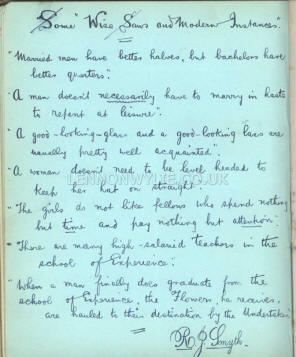 Some "Wise Saws and Modern Instances"
"Married men have better halves, but bachelors have
better quarters".
"A man doesn't necessarily have to marry in haste
to repent at leisure".
"A good-looking-glass and a good-looking lass are
usually pretty well acquainted".
"A woman doesn't need to be level headed to
keep her hat on straight".
LENMONWYHE.CO.UK
"The girls do not like fellows who spend nothing
but time and pay nothing but attention".
"There are many high-salaried teachers in the
school of Experience".
"When a man finally does graduate from the
school of Experience, the Flowers he receives,
are hauled to their destination by the Undertaker
R. P. Smyth.